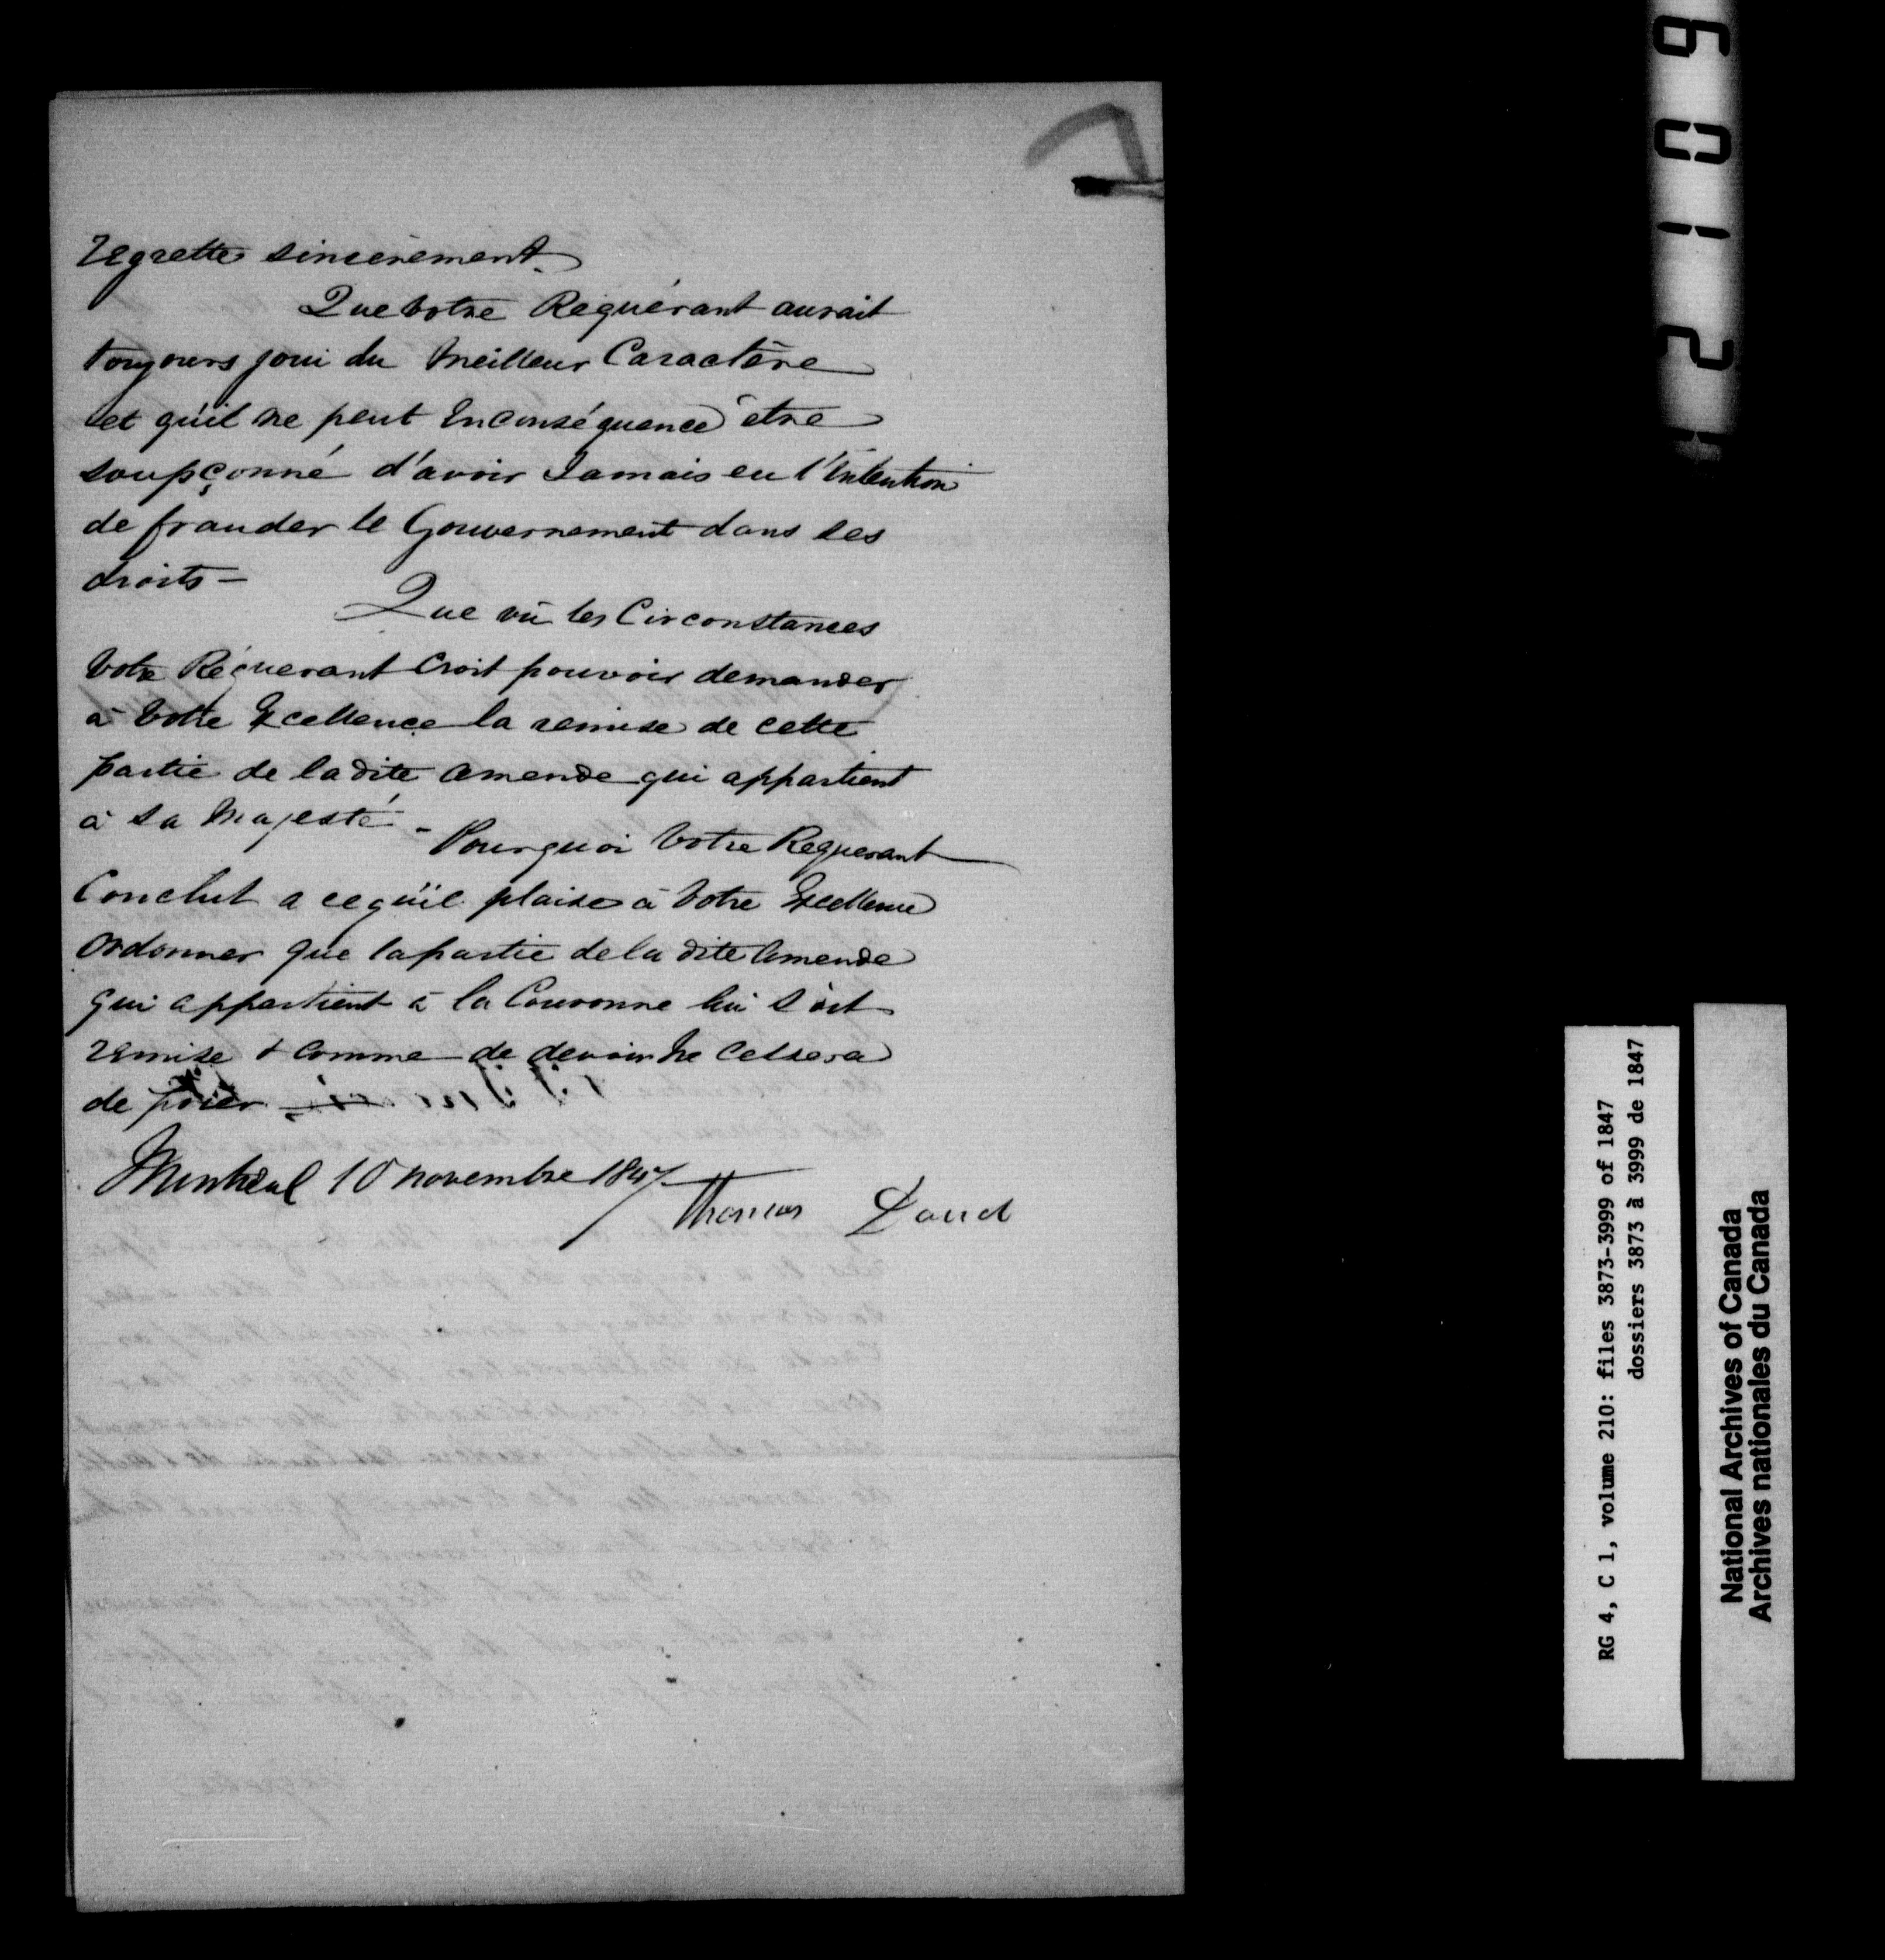 regrette sincèrement.
Que Votre Requérant aurait
toujours joui du Meilleur Caractère
et qu'il ne peut Enconséquence être
soupçonné d'avoir Jamais eu l'Intention
de frauder le Gouvernement dans ses
droits -
Que vû les Circonstances
Votre Réquerant Croit pouvoir demander
à Votre Excellence la remise de cette
partie de ladite amende qui appartient
à Sa Majesté -
Pourquoi Votre Requerant
Conclut a ce qu'il plaise à Votre Excellence
Ordonner que la partie de la dite Amende
qui appartient à la Couronne lui soit
remise & comme de devoir Ne Cessera
de prier
Montréal 10 novembre 1847
Thomas David
6012
RG 4, C 1, volume 210: files 3873-3999 of 1847
dossiers 3873 à 3999 de 1847
National Archives of Canada
Archives nationales du Canada